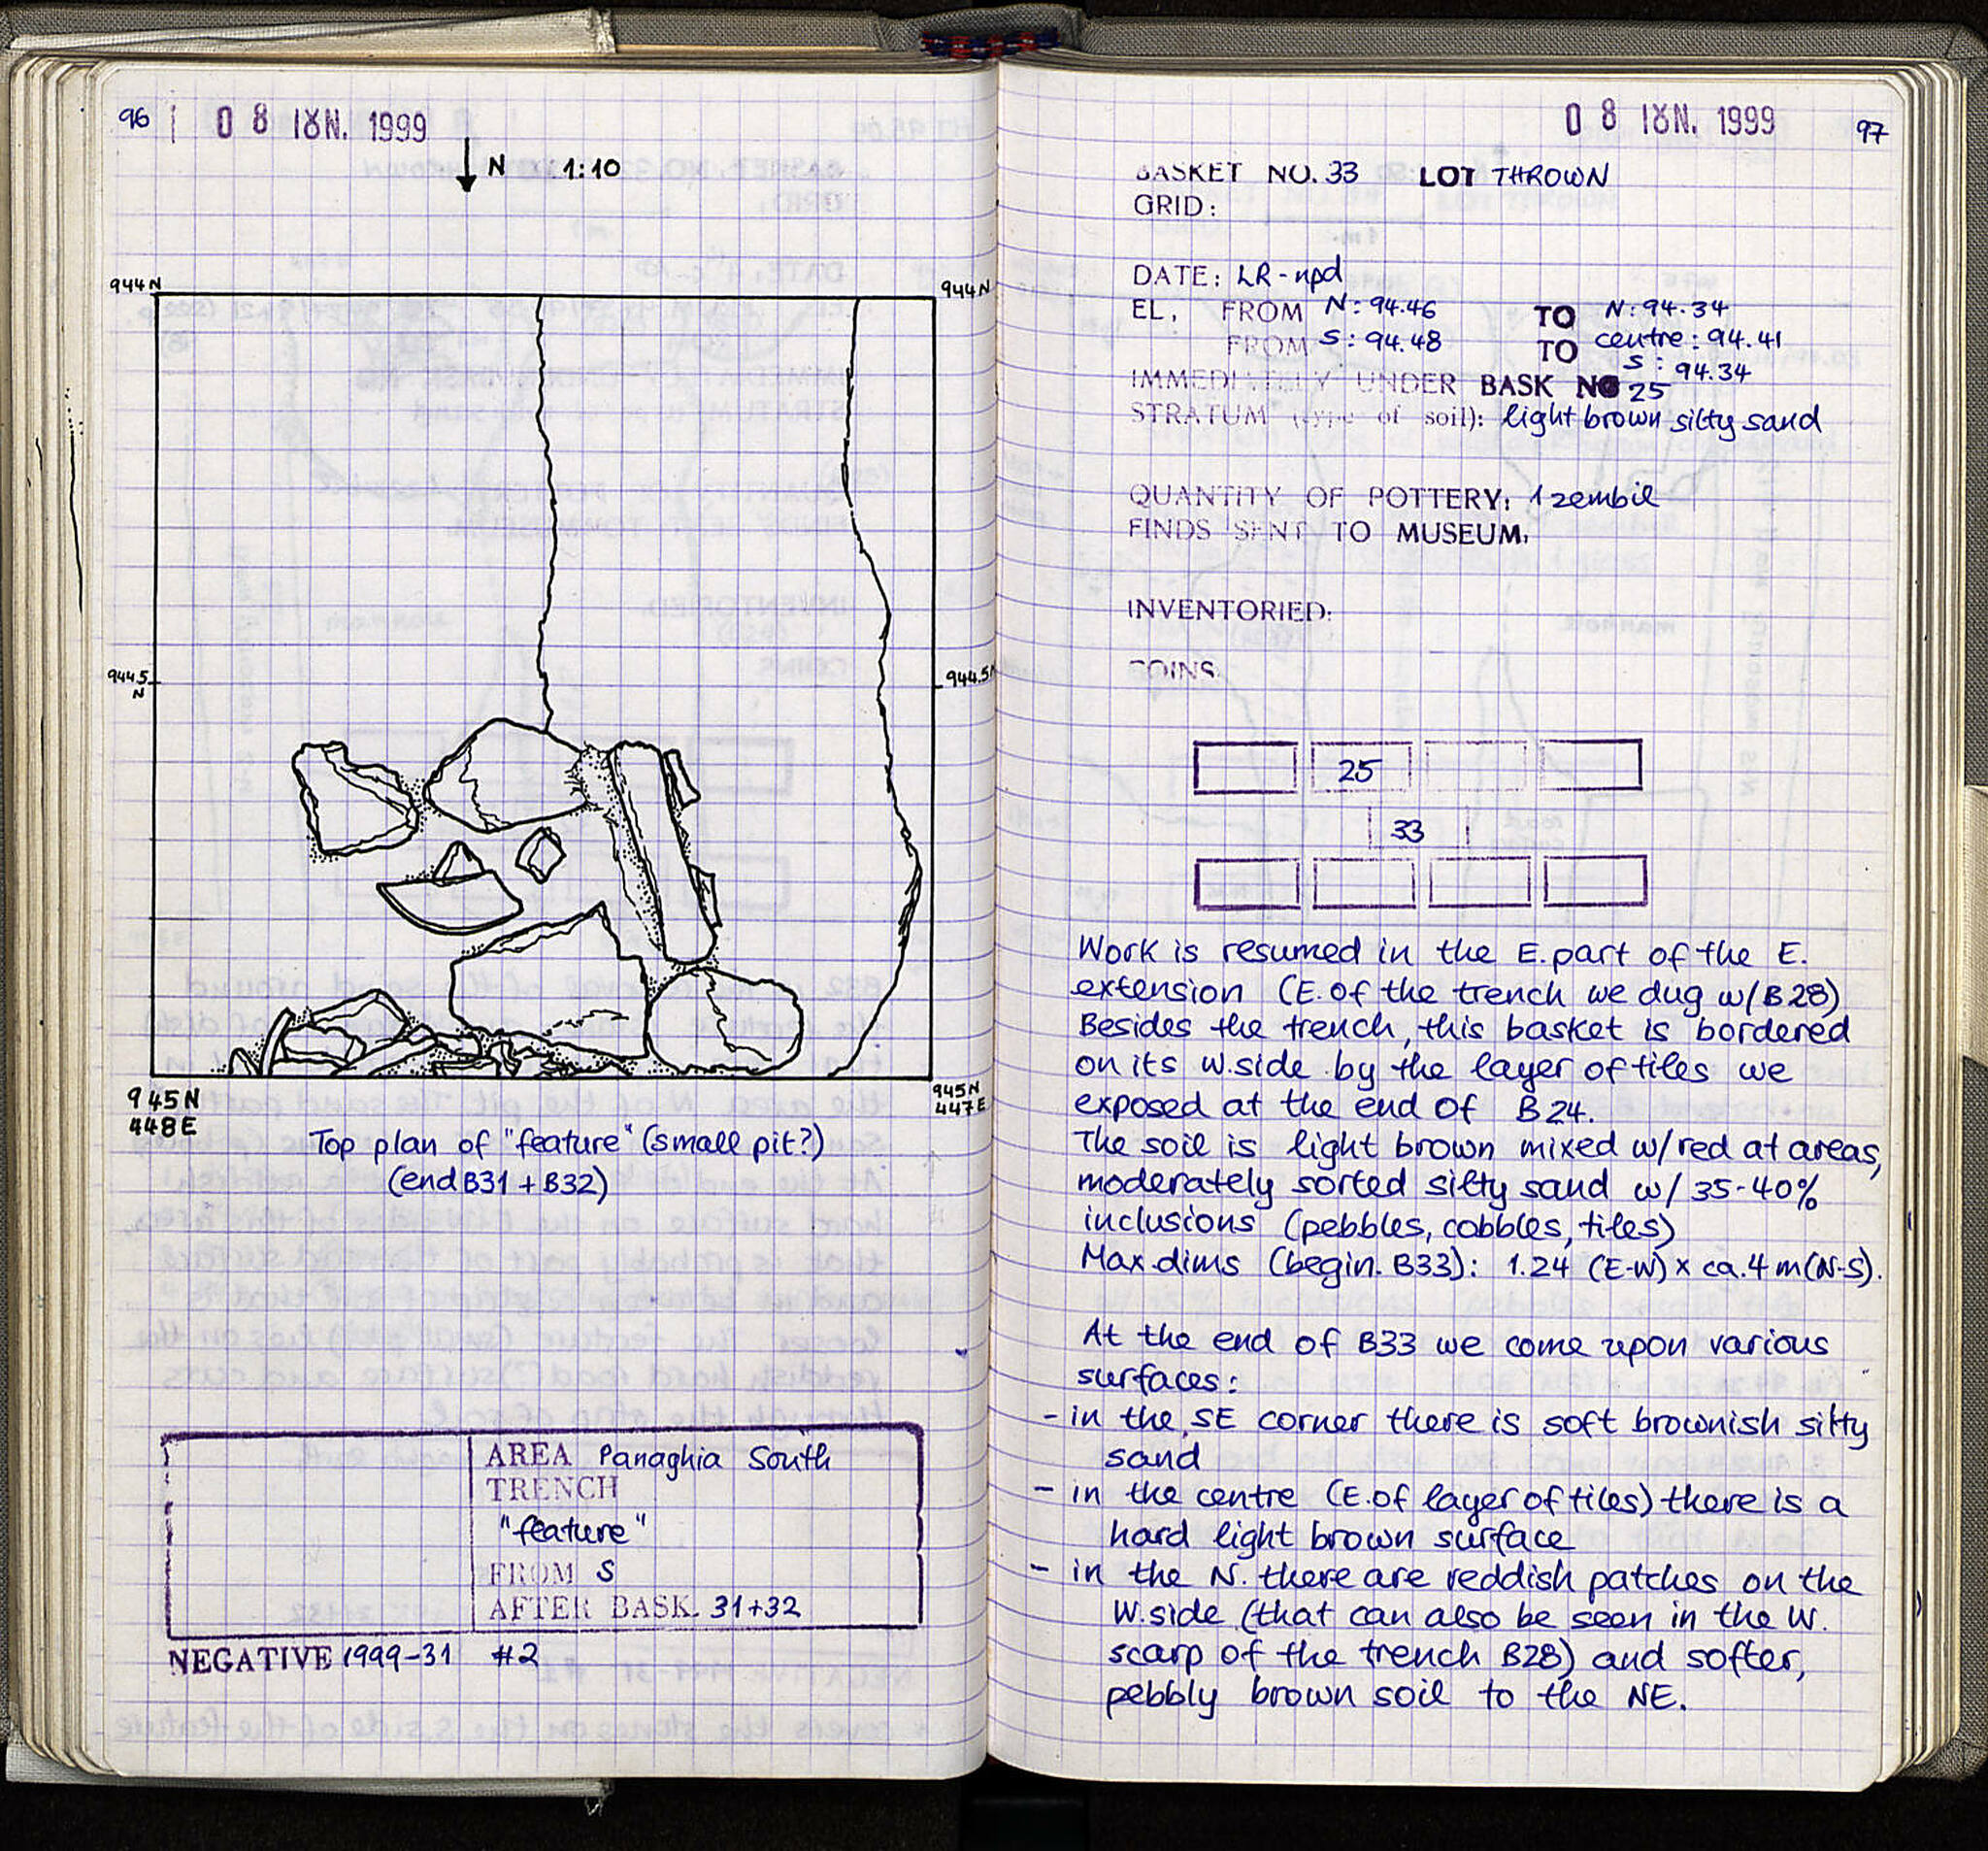 96
08 ΙΟΥΝ. 1999
N 1:10
944N
944N
944.5
N
944.5N
945N
448E
945N
447E
Top plan of "feature" (small pit?)
(end B31 + B32)
AREA Panaghia South
TRENCH
"feature"
FROM S
AFTER BASK. 31+32
NEGATIVE 1999-31 #2
08 ΙΟΥΝ. 1999
97
BASKET NO. 33 LOT THROWN
GRID:
DATE: LR-npd
EL, FROM N: 94.46 TO N: 94.34
FROM S: 94.48 TO centre: 94.41
S: 94.34
IMMEDIATELY UNDER BASK NO 25
STRATUM (type of soil): light brown silty sand
QUANTITY OF POTTERY: 1 zembil
FINDS SENT TO MUSEUM:
INVENTORIED:
COINS
25
33
Work is resumed in the E. part of the E.
extension (E. of the trench we dug w/ B28)
Besides the trench, this basket is bordered
on its w.side by the layer of tiles we
exposed at the end of B24.
The soil is light brown mixed w/ red at areas,
moderately sorted silty sand w/ 35-40%
inclusions (pebbles, cobbles, tiles)
Max.dims (begin. B33): 1.24 (E-W) x ca. 4 m (N-S).
At the end of B33 we come upon various
surfaces:
- in the SE corner there is soft brownish silty
sand
- in the centre (E. of layer of tiles) there is a
hard light brown surface
- in the N. there are reddish patches on the
W. side (that can also be seen in the W.
scarp of the trench B28) and softer,
pebbly brown soil to the NE.